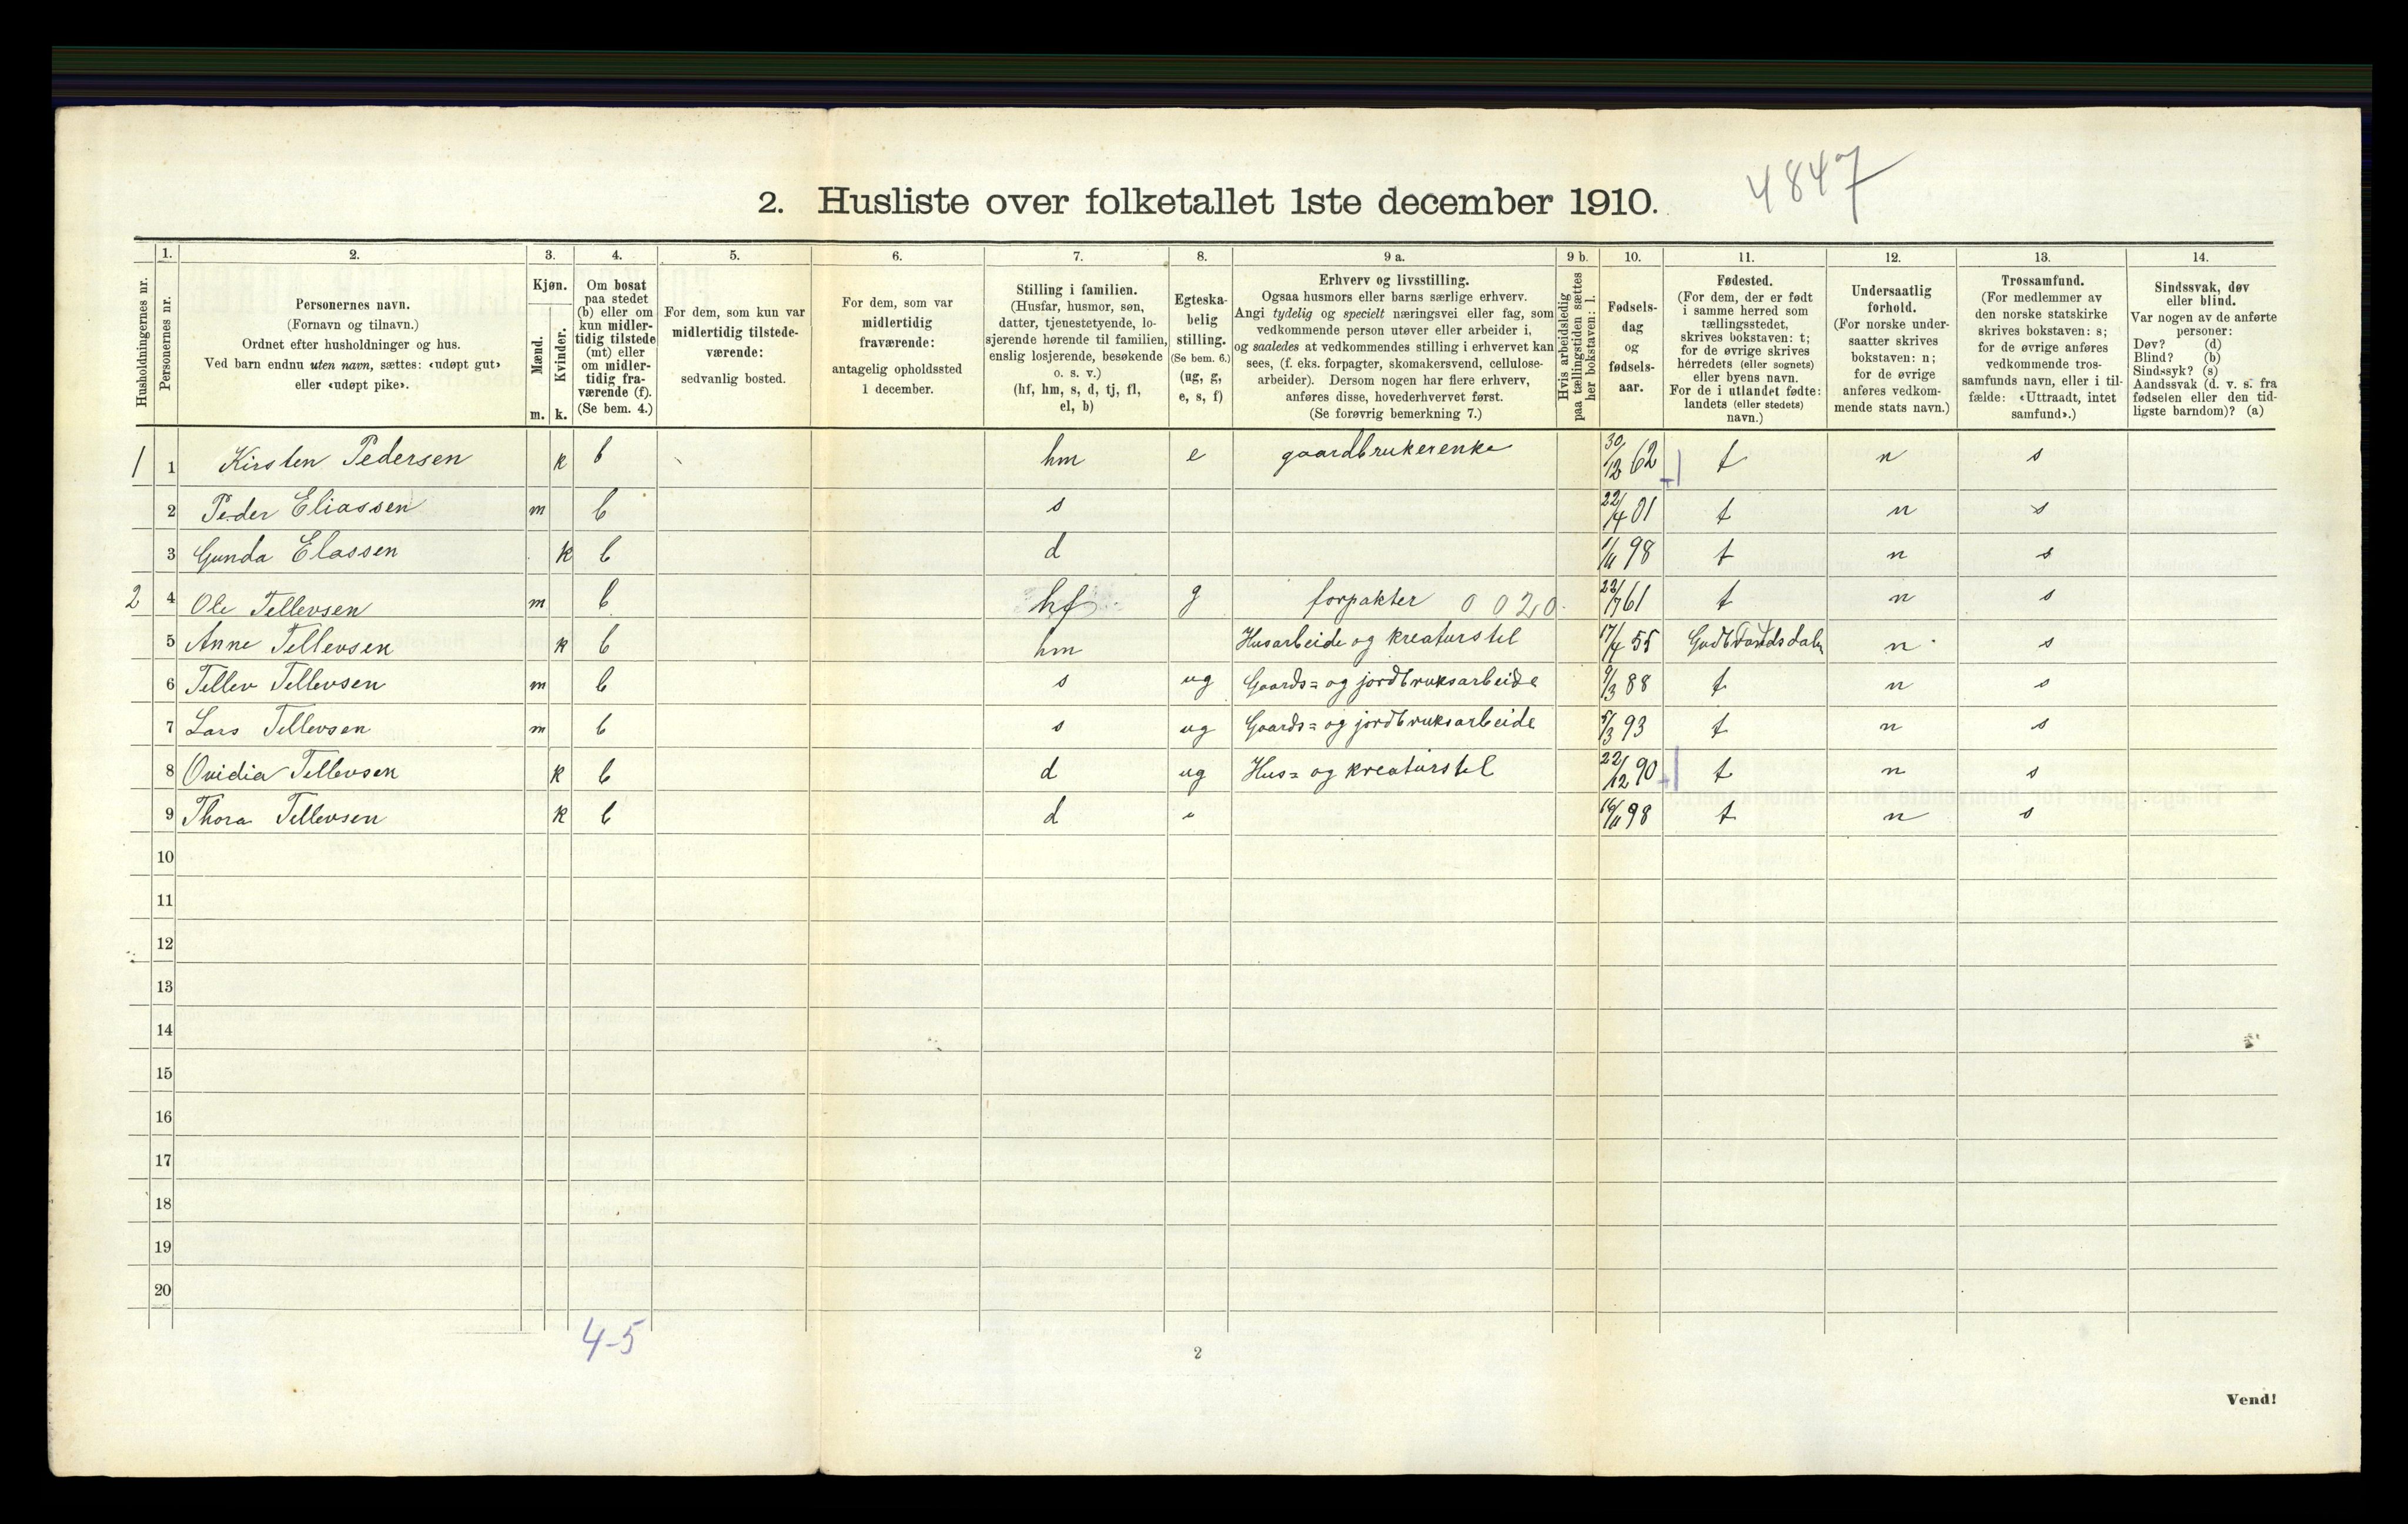 4847
2. Husliste over folketallet 1ste december 1910.
Husholdningernes nr.
1. Personernes nr.
2. Personernes navn.
(Fornavn og tilnavn.)
Ordnet efter husholdninger og hus.
Ved barn endnu uten navn, sættes: «udøpt gut»
eller «udøpt pike».
3. Kjøn.
Mænd. m.
Kvinder. k.
4. Om bosat
paa stedet
(b) eller om
kun midler-
tidig tilstede
(mt) eller
om midler-
tidig fra-
værende (f).
(Se bem. 4.)
5. For dem, som kun var
midlertidig tilstede-
værende:
sedvanlig bosted.
6. For dem, som var
midlertidig
fraværende:
antagelig opholdssted
1 december.
7. Stilling i familien.
(Husfar, husmor, søn,
datter, tjenestetyende, lo-
sjerende hørende til familien,
enslig losjerende, besøkende
o. s. v.)
(hf, hm, s, d, tj, fl,
el, b)
8. Egteska-
belig
stilling.
(Se bem. 6.)
(ug, g,
e, s, f)
9 a. Erhverv og livsstilling.
Ogsaa husmors eller barns særlige erhverv.
Angi tydelig og specielt næringsvei eller fag, som
vedkommende person utøver eller arbeider i,
og saaledes at vedkommendes stilling i erhvervet kan
sees, (f. eks. forpagter, skomakersvend, cellulose-
arbeider). Dersom nogen har flere erhverv,
anføres disse, hovederhvervet først.
(Se forøvrig bemerkning 7.)
9 b. Hvis arbeidsledig
paa tællingstiden sættes
her bokstaven: l.
10. Fødsels-
dag
og
fødsels-
aar.
11. Fødested.
(For dem, der er født
i samme herred som
tællingsstedet,
skrives bokstaven: t;
for de øvrige skrives
herredets (eller sognets)
eller byens navn.
For de i utlandet fødte:
landets (eller stedets)
navn.)
12. Undersaatlig
forhold.
(For norske under-
saatter skrives
bokstaven: n;
for de øvrige
anføres vedkom-
mende stats navn.)
13. Trossamfund.
(For medlemmer av
den norske statskirke
skrives bokstaven: s;
for de øvrige anføres
vedkommende tros-
samfunds navn, eller i til-
fælde: «Uttraadt, intet
samfund».)
14. Sindssvak, døv
eller blind.
Var nogen av de anførte
personer:
Døv? (d)
Blind? (b)
Sindssyk? (s)
Aandssvak (d. v. s. fra
fødselen eller den tid-
ligste barndom)? (a)
1 1 Kirsten Pedersen k b hm e gaardbrukerenke 30/12 62 t n s
2 Peder Eliassen m b s 22/4 01 t n s
3 Gunda Elassen k b d 1/11 98 t n s
2 4 Ole Tellevsen m b hf g forpakter 0 0 2 0 23/7 61 t n s
5 Anne Tellevsen k b hm Husarbeide og kreaturstel 17/4 55 Gudbrandsdalen n s
6 Tellev Tellevsen m b s ug Gaards= og jordbruksarbeide 9/3 88 t n s
7 Lars Tellevsen m b s ug Gaards= og jordbruksarbeide 5/3 93 t n s
8 Ovidia Tellevsen k b d ug Hus= og kreaturstel 22/12 90 t n s
9 Thora Tellevsen k b d 16/11 98 t n s
10
11
12
13
14
15
16
17
18
19
20
4-5
2
Vend!